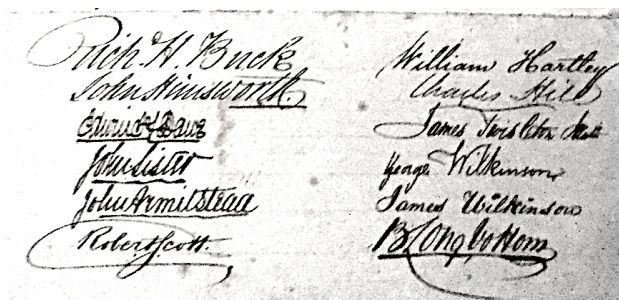 Rich. H. Buck
John Hinsworth.
John Lister
John Armitstead
Robert Scott.
William Hartley
Charles Hill
James Twisleton
George Wilkinson
James Wilkinson
B Longbottom